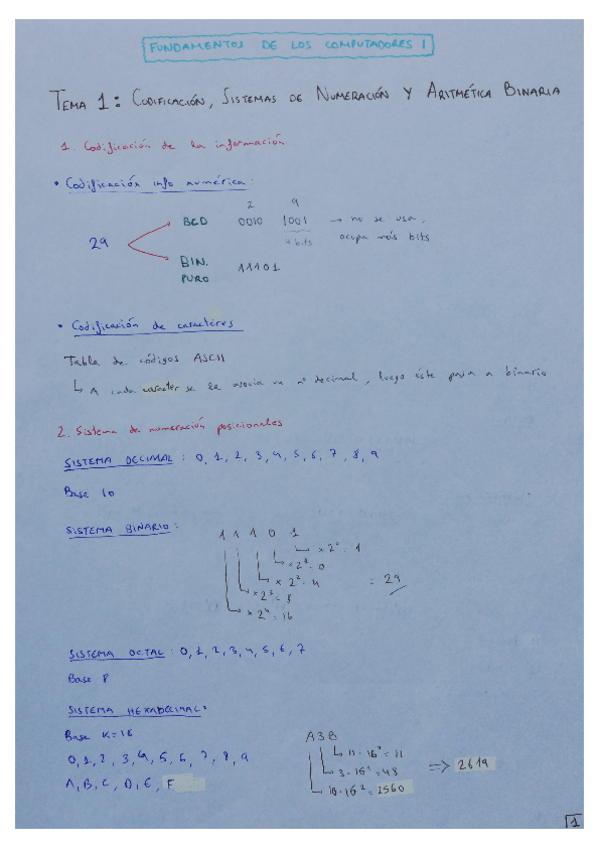 FUNDAMENTOS DE LOS COMPUTADORES I
TEMA 1: CODIFICACIÓN, SISTEMAS DE NUMERACIÓN Y ARITMÉTICA BINARIA
1. Codificación de la información
• Codificación info numérica:
2 9
29
BCD 0010 1001 → no se usa,
4 bits ocupa más bits
BIN. PURO 11101
• Codificación de caracteres
Tabla de códigos ASCII
↳ A cada carácter se le asocia un nº decimal, luego éste pasa a binario
2. Sistema de numeración posicionales
SISTEMA DECIMAL: 0, 1, 2, 3, 4, 5, 6, 7, 8, 9
Base 10
SISTEMA BINARIO:
1 1 1 0 1
x 2⁰ = 1
x 2¹ = 0
x 2² = 4 = 29
x 2³ = 8
x 2⁴ = 16
SISTEMA OCTAL: 0, 1, 2, 3, 4, 5, 6, 7
Base 8
SISTEMA HEXADECIMAL:
Base K=16
0, 1, 2, 3, 4, 5, 6, 7, 8, 9
A, B, C, D, E, F
A3B
11 · 16⁰ = 11
3 · 16¹ = 48 => 2619
10 · 16² = 2560
1